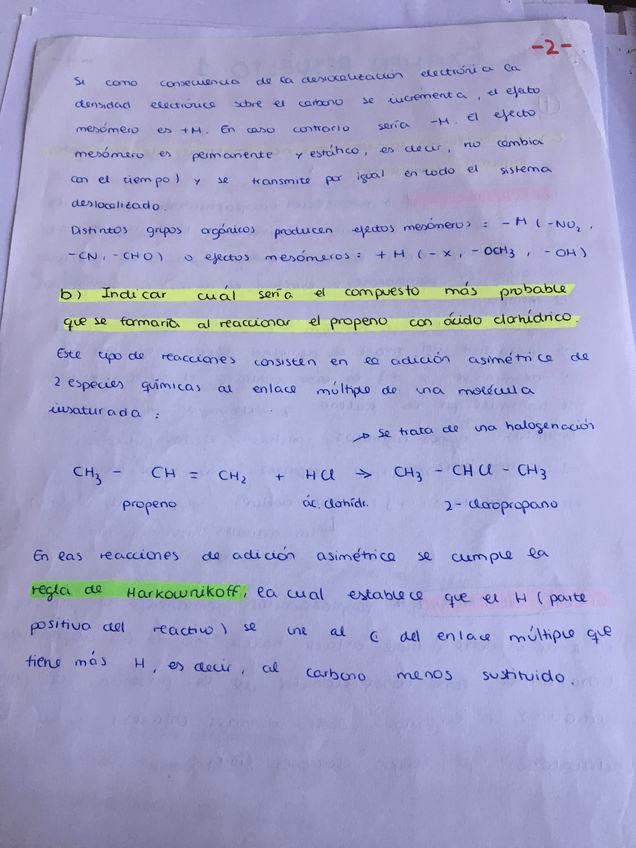 -2-
Si como consecuencia de la deslocalización electrónica la
densidad electrónica sobre el carbono se incrementa, el efecto
mesómero es +M. En caso contrario sería -M. El efecto
mesómero es permanente y estático, es decir, no cambia
con el tiempo) y se transmite por igual en todo el sistema
deslocalizado.
Distintos grupos orgánicos producen efectos mesómeros: -M (-NO₂,
-CN, -CHO) o efectos mesómeros: +M (-X, -OCH₃, -OH)
b) Indicar cuál sería el compuesto más probable
que se formaría al reaccionar el propeno con ácido clorhídrico
Este tipo de reacciones consisten en la adición asimétrica de
2 especies químicas al enlace múltiple de una molécula
insaturada:
→ Se trata de una halogenación
CH₃ - CH = CH₂ + HCl → CH₃ - CHCl - CH₃
propeno ác. clorhídr. 2-cloropropano
En las reacciones de adición asimétrica se cumple la
regla de Markownikoff, la cual establece que el H (parte
positiva del reactivo) se une al C del enlace múltiple que
tiene más H, es decir, al carbono menos sustituido.